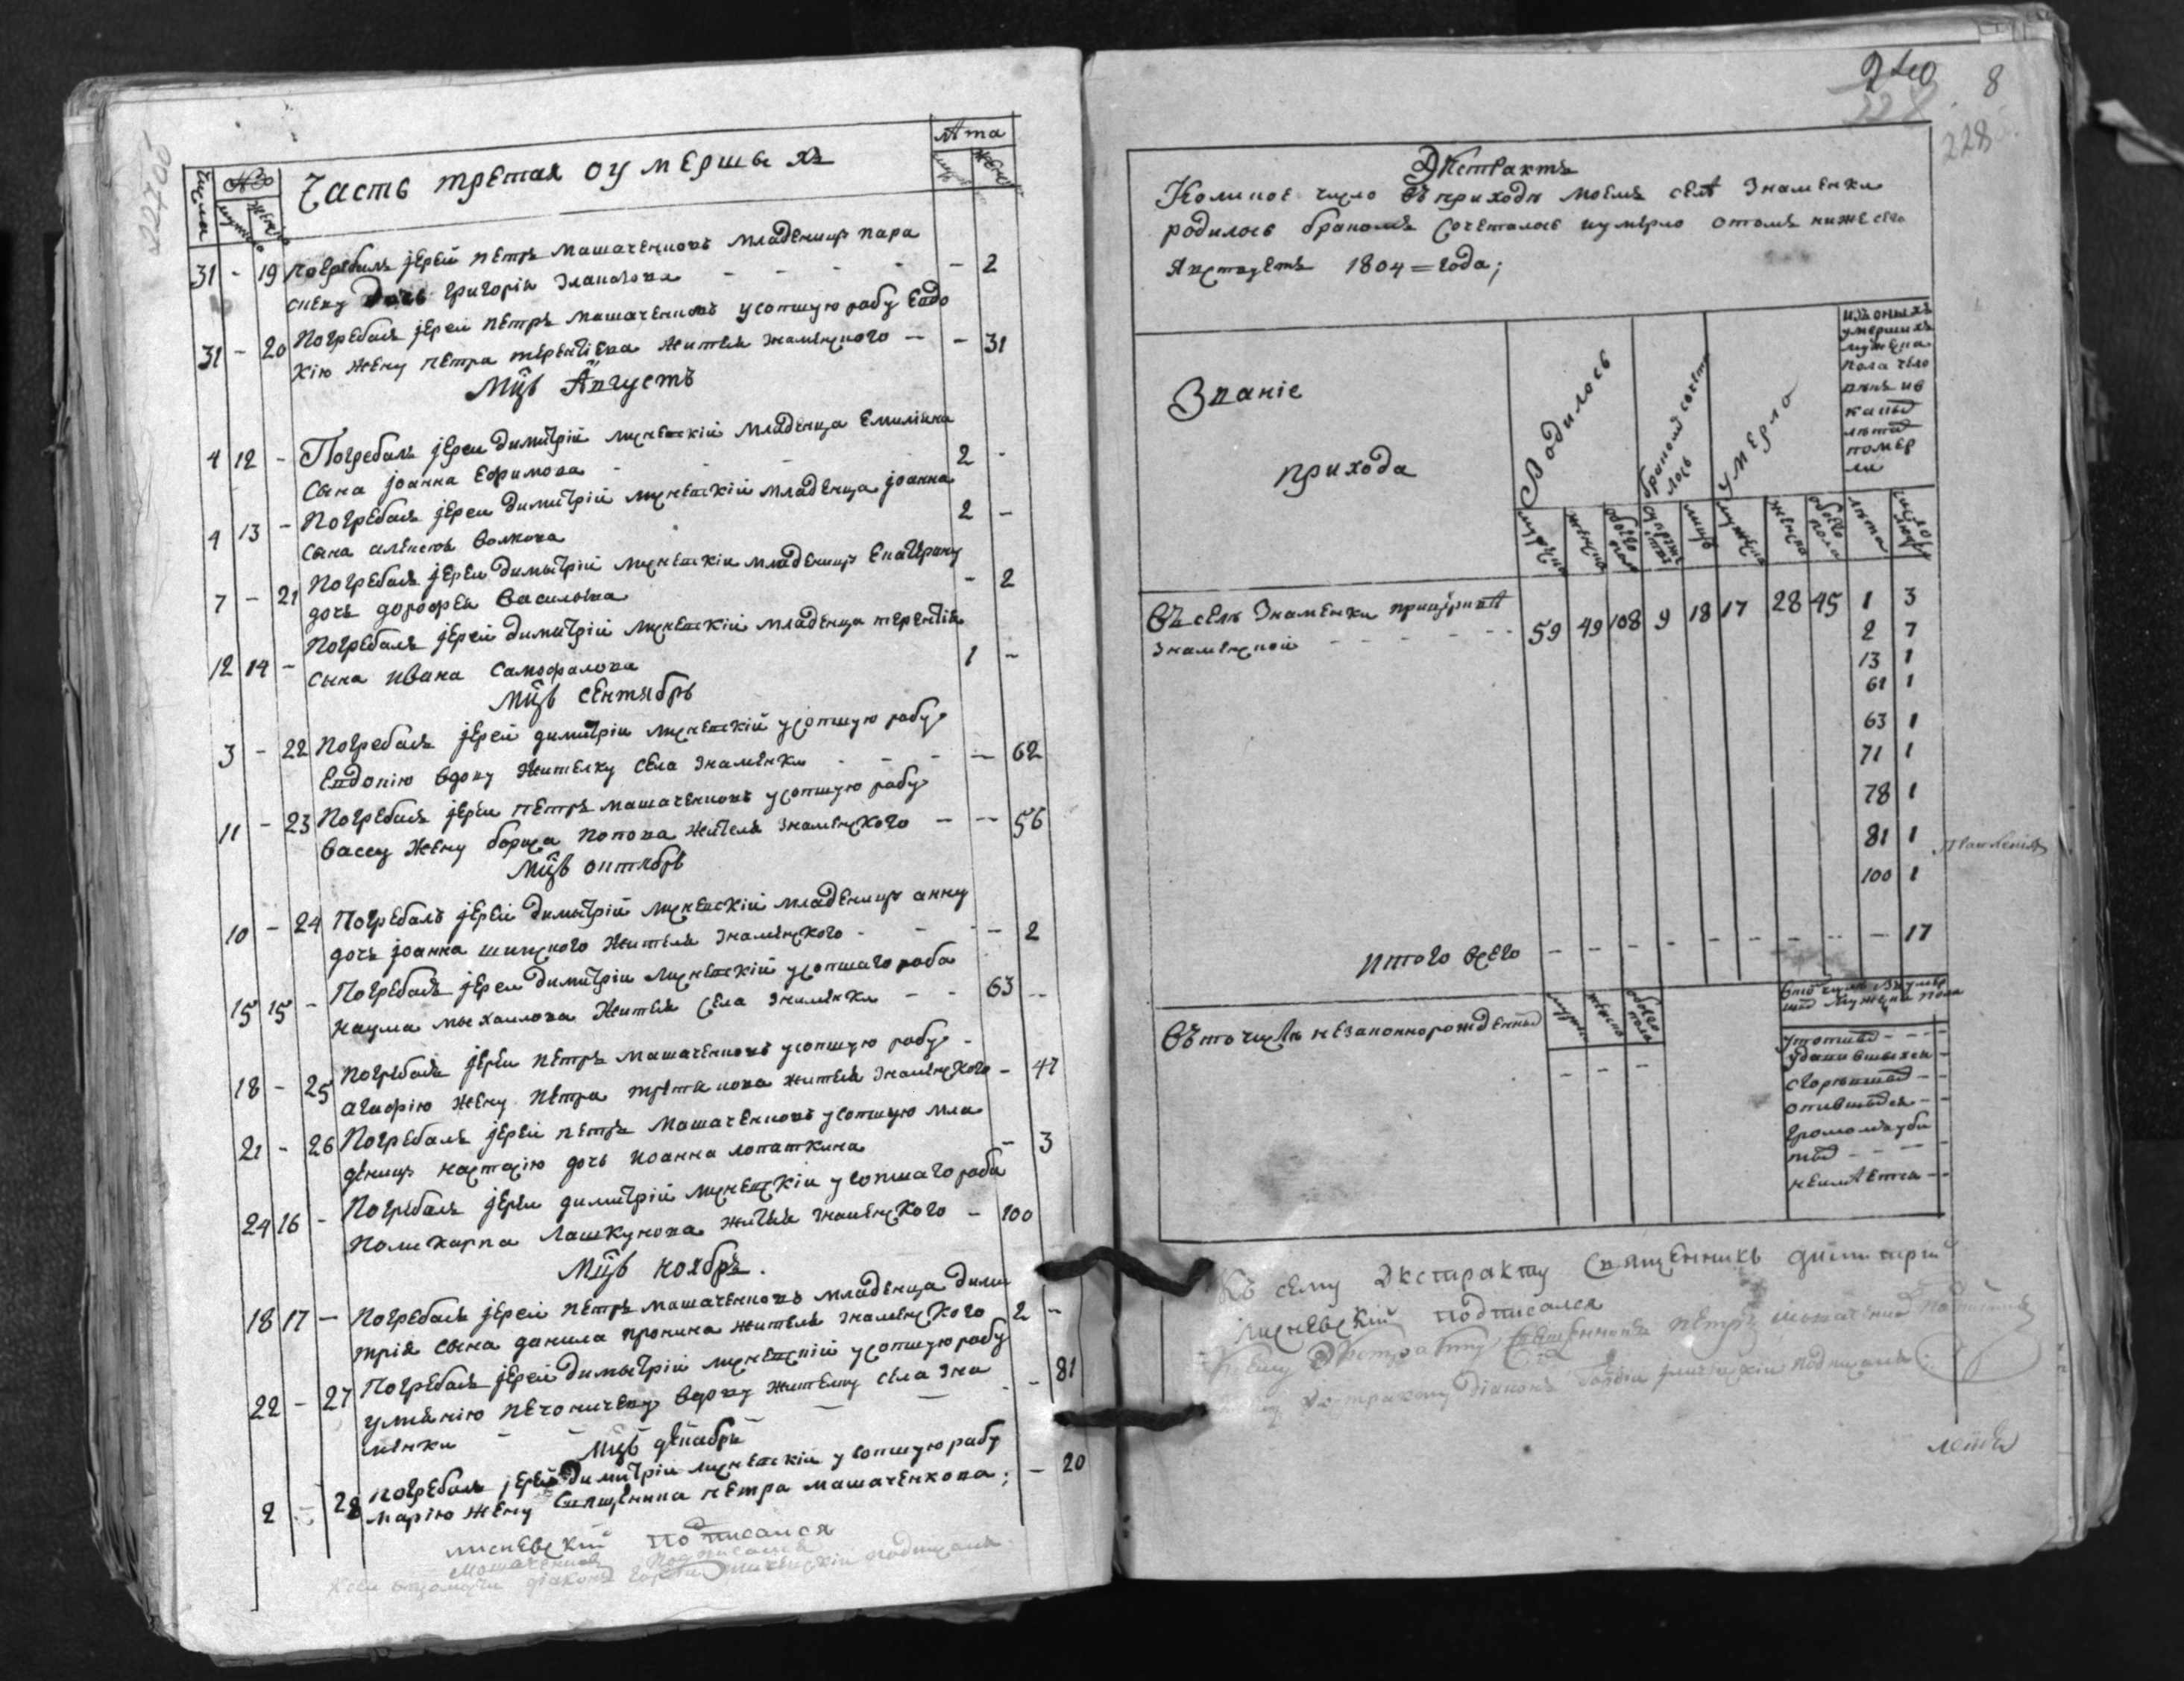 Числа № Часть третая оумершихъ Лѣта
муж женс муж женс
31 - 19 Погребалъ јерей петръ машаченковъ младеницу пара
скеву дочь григорія - - - - - 2
31 - 20 Погребалъ јерей петръ машаченковъ усопшую рабу Евдо
кію жену петра терентіева жителя знаменского - - 31
Мцъ Августъ
4 12 - Погребалъ јерей Димитрій лисневскій младенца Емиліана
сына јоанна Ефимова - - - 2 -
4 13 - Погребалъ јерей Димитрій лисневскій младенца јоанна
сына алексея волкова 2 -
7 - 21 Погребалъ јерей Димытрій лисневскій младеницу Екатерину
дочь дорофея Васильева - 2
12 14 - Погребалъ јерей Димитрій лисневскій младенца терентія
сына ивана Самофалова 1 -
Мцъ сентябрь
3 - 22 Погребалъ јерей димитрій лисневскій усопшую рабу
Евдокію вдову жителку села знаменки - - - - 62
11 - 23 Погребалъ јерей петръ машаченковъ усопшую рабу
вассу жену попова жителя знаменского - - 56
Мцъ октябрь
10 - 24 Погребалъ јерей Димытрій лисневскій младеницу анну
дочь јоанна жителя знаменского - - - - 2
15 15 - Погребалъ јерей димитрій лисневскій усопшаго раба
наума михаилова жителя села знаменки - - 63 --
18 - 25 Погребалъ јерей петръ машаченковъ усопшую рабу -
агафію жену петра жителя знаменского - 47
21 - 26 Погребалъ јерей петръ машаченковъ усопшую мла
деницу настасію дочь иоанна лопаткина - 3
24 16 - Погребалъ јерей димитрій лисневскій усопшаго раба
поликарпа лашкунова жителя знаменского - 100
Мцъ ноябрь.
18 17 - Погребалъ јерей петръ машаченковъ младенца дими
трія сына данила пронина жителя знаменского 2 -
22 - 27 Погребалъ јерей Димытрій лисневскій усопшую рабу
вдову жителку села зна - 81
менки - - - -
Мцъ декабрь
2 - 28 погребалъ јерей Димитрій лисневскій усопшую рабу
марію жену священика петра машаченкова; - 20
лисневскій подписался
машаченковъ подписался
діаконъ подписался
240 8
228
228
Экстрактъ
Коликое число въ приходѣ моемъ селѣ Знаменки
родилось бракомъ сочеталось и умерло о томъ ниже сего
явствуетъ 1804 = года;
Званіе
прихода
Родилось
бракомъ сочета
лось
умерло
изъ оныхъ
умершихъ
мужска
пола чело
вѣкъ и в
какихъ
лѣтахъ
помер
ли
мужска женска обоего пола супружествъ лицъ мужска женска обоего пола лѣта число
Въ селѣ Знаменки при церквѣ
знаменской - - - - - 59 49 108 9 18 17 28 45 1 3
2 7
13 1
61 1
63 1
71 1
78 1
81 1
100 1
итого всего - - - - - - - - - 17
Въ то числѣ незаконнорожденныхъ мужска женска обоего пола
- - -
В томъ числѣ умер
шихъ мужска пола
утопшихъ - - -
удавившихся -
сгоревшихъ - -
опившихся - -
громомъ уби
тыхъ - - -
неимѣется - -
Къ сему Экстракту Священникъ димитрий
лисневский подписался
сему Экстракту Священникъ петръ машаченковъ подписался
Экстракту діаконъ подписался